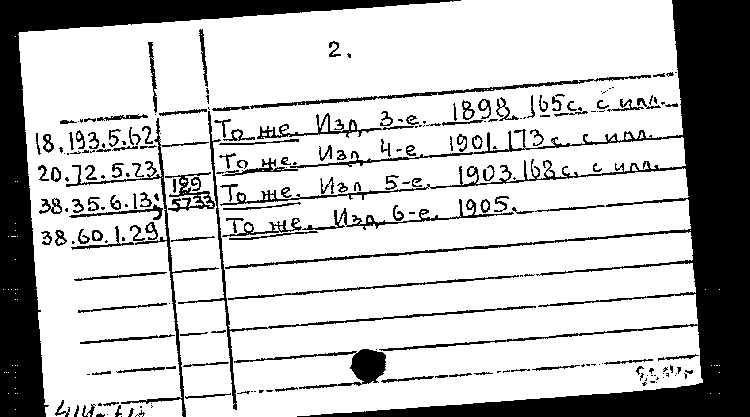 2.
18.193.5.62. То же. Изд. 3-е. 1898. 165 с. с илл.
20.72.5.23. То же. Изд. 4-е. 1901. 173 с. с илл.
38.35.6.13; 189/5733 То же. Изд. 5-е. 1903. 168 с. с илл.
38.60.1.29. То же. Изд. 6-е. 1905.